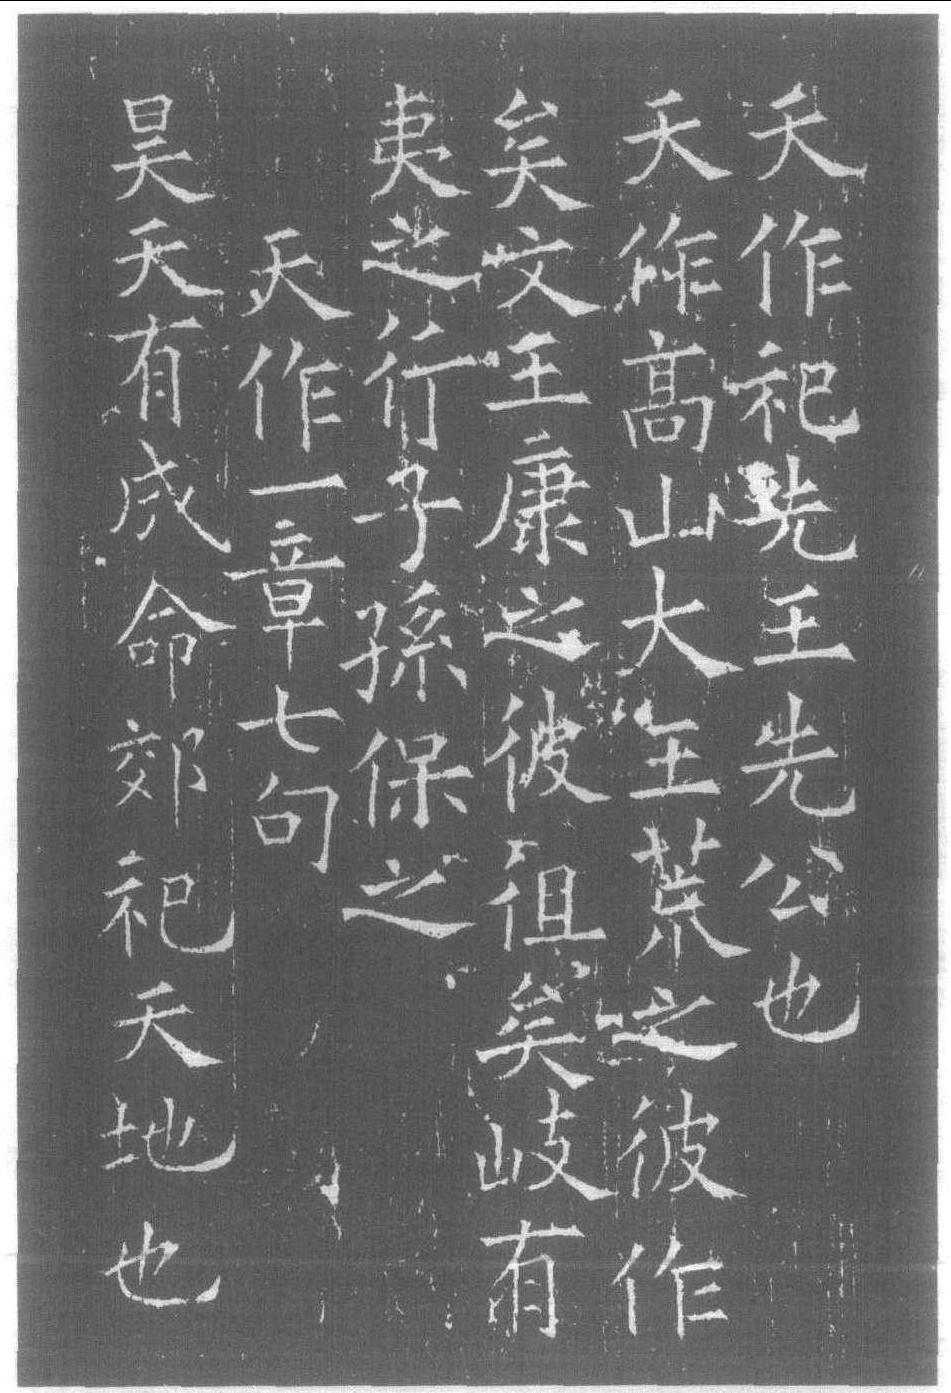 天作祀先王先公也
天作高山大王荒之彼作
矣文王康之彼徂矣岐有
夷之行子孫保之
天作一章七句
昊天有成命郊祀天地也